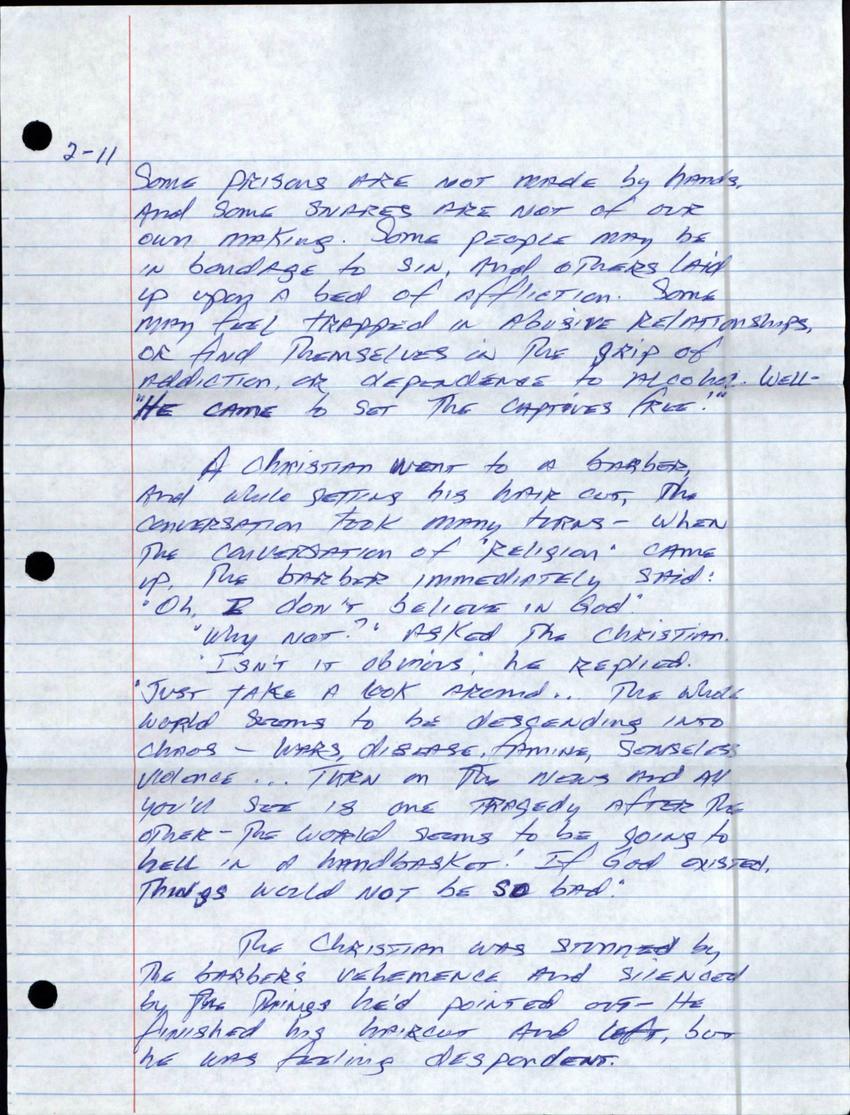 2-11
Some prisons are not made by hands,
And some snares are not of our
own making. Some people may be
in bondage to sin, and others laid
up upon a bed of affliction. Some
may feel trapped in abusive relationships,
or find themselves in the grip of
addiction, or dependence to alcohol. Well-
"He came to set the captives free!"
A Christian went to a barber,
and while getting his hair cut, the
conversation took many turns - when
the conversation of "religion" came
up, the barber immediately said:
"Oh, I don't believe in God."
"Why not?" asked the Christian.
"Isn't it obvious", he replied.
"Just take a look around... The whole
world seems to be descending into
chaos - wars, disease, famine, senseless
violence... Turn on the news and all
you'll see is one tragedy after the
other - the world seems to be going to
hell in a handbasket! If God existed,
things would not be so bad."
The Christian was stunned by
the barber's vehemence and silenced
by the things he'd pointed out - He
finished his haircut and left, but
he was feeling despondent.